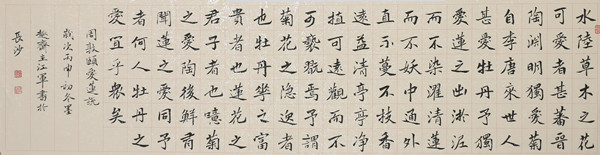 水陸草木之花
可愛者甚蕃晉
陶淵明獨愛菊
自李唐來世人
甚愛牡丹予獨
愛蓮之出淤泥
而不染濯清漣
而不妖中通外
直不蔓不枝香
遠益清亭亭淨
植可遠觀而不
可褻翫焉予謂
菊花之隱逸者
也牡丹華之富
貴者也蓮花之
君子者也噫菊
之愛陶後鮮有
聞蓮之愛同予
者何人牡丹之
愛宜乎衆矣
周敦頤愛蓮説
歲次丙申初冬墨
齋主江軍書於
長沙